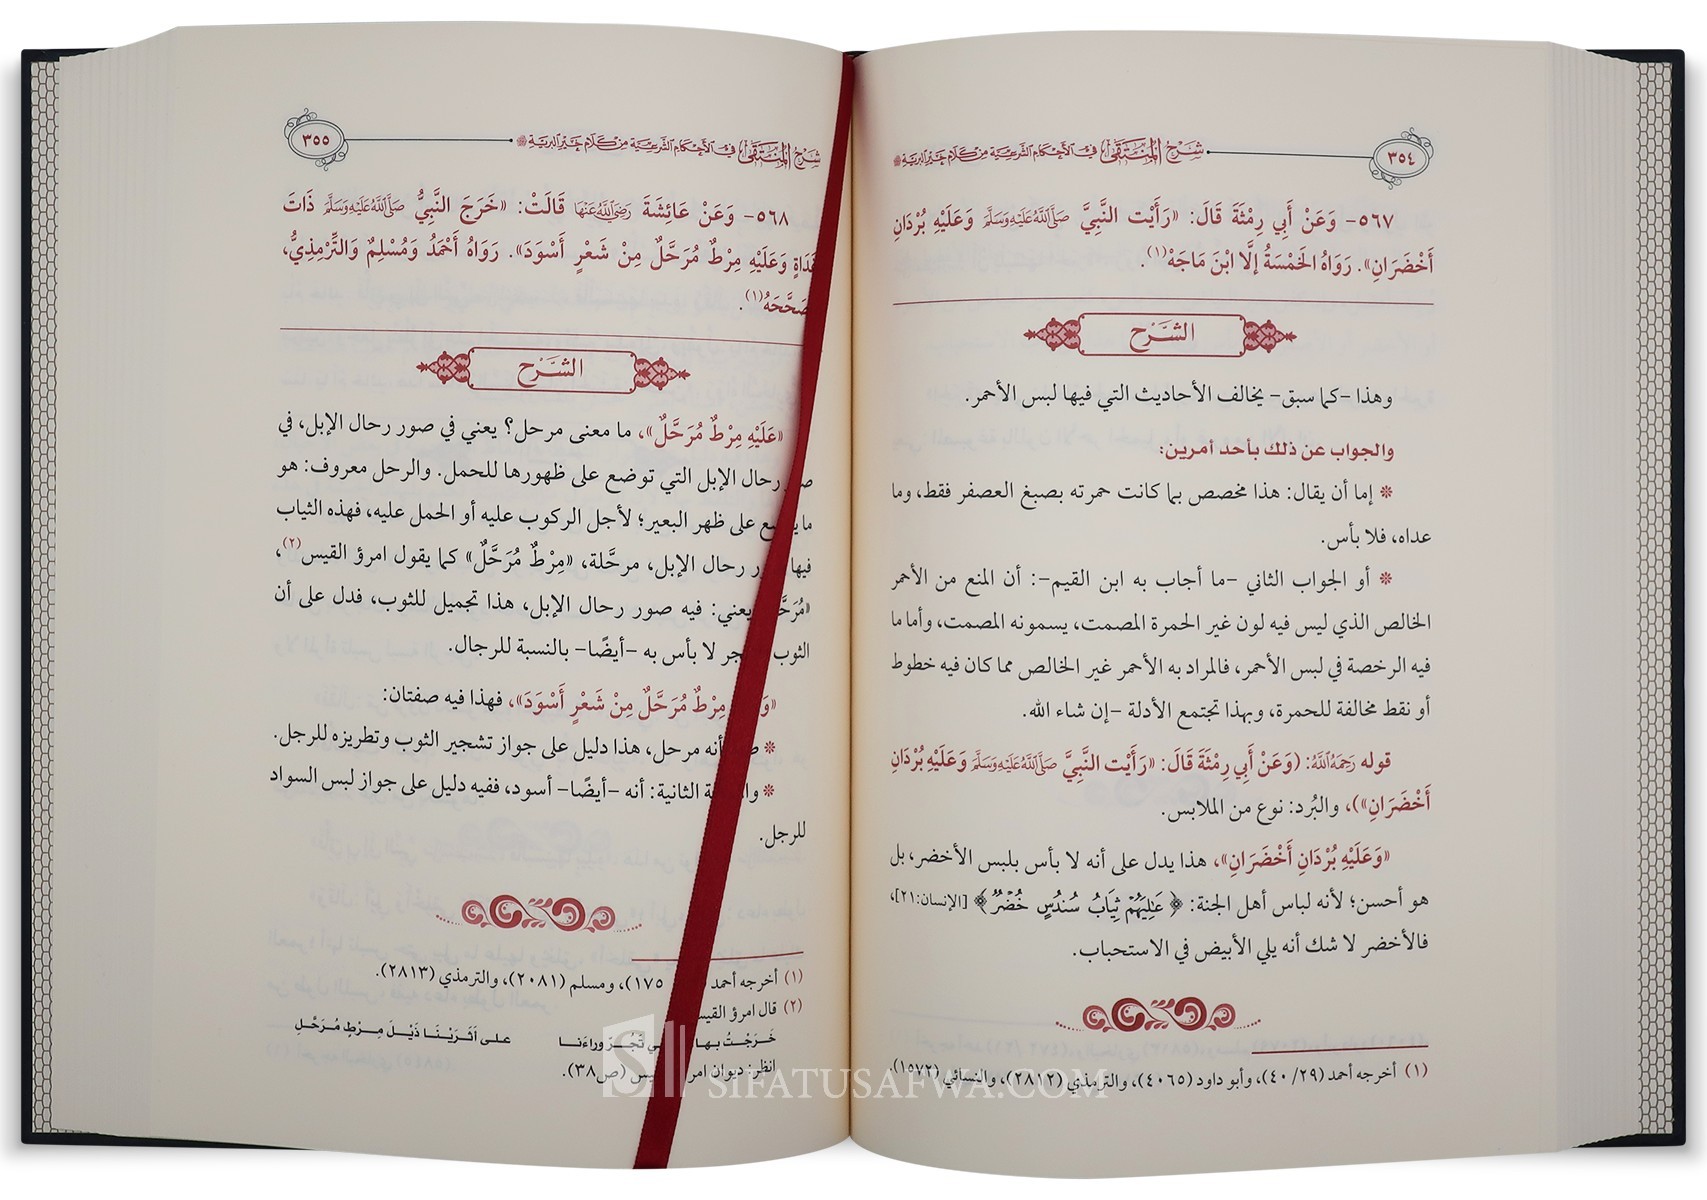 ٣٥٤
شرح المنتقى في الأحكام الشرعية من كلام خير البرية ﷺ
٥٦٧- وَعَنْ أَبِي رِمْثَةَ قَالَ: «رَأَيْت النَّبِيَّ صَلَّى اللَّهُ عَلَيْهِ وَسَلَّمَ وَعَلَيْهِ بُرْدَانِ
أَخْضَرَانِ». رَوَاهُ الْخَمْسَةُ إلَّا ابْنَ مَاجَهْ(١).
الشَّرْح
وهذا -كما سبق- يخالف الأحاديث التي فيها لبس الأحمر.
والجواب عن ذلك بأحد أمرين:
* إما أن يقال: هذا مخصص بما كانت حمرته بصبغ العصفر فقط، وما
عداه، فلا بأس.
* أو الجواب الثاني -ما أجاب به ابن القيم-: أن المنع من الأحمر
الخالص الذي ليس فيه لون غير الحمرة المصمت، يسمونه المصمت، وأما ما
فيه الرخصة في لبس الأحمر، فالمراد به الأحمر غير الخالص مما كان فيه خطوط
أو نقط مخالفة للحمرة، وبهذا تجتمع الأدلة -إن شاء الله.
قوله رَحِمَهُ اللَّهُ: (وَعَنْ أَبِي رِمْثَةَ قَالَ: «رَأَيْت النَّبِيَّ صَلَّى اللَّهُ عَلَيْهِ وَسَلَّمَ وَعَلَيْهِ بُرْدَانِ
أَخْضَرَانِ»)، والبُرد: نوع من الملابس.
«وَعَلَيْهِ بُرْدَانِ أَخْضَرَانِ»، هذا يدل على أنه لا بأس بلبس الأخضر، بل
هو أحسن؛ لأنه لباس أهل الجنة: ﴿عَٰلِيَهُمۡ ثِيَابُ سُندُسٍ خُضۡرٞ﴾ [الإنسان:٢١]،
فالأخضر لا شك أنه يلي الأبيض في الاستحباب.
(١) أخرجه أحمد (٤٠/٢٩)، وأبو داود (٤٠٦٥)، والترمذي (٢٨١٢)، والنسائي (١٥٧٢).
٣٥٥
شرح المنتقى في الأحكام الشرعية من كلام خير البرية ﷺ
٥٦٨- وَعَنْ عَائِشَةَ رَضِيَ اللَّهُ عَنْهَا قَالَتْ: «خَرَجَ النَّبِيُّ صَلَّى اللَّهُ عَلَيْهِ وَسَلَّمَ ذَاتَ
غَدَاةٍ وَعَلَيْهِ مِرْطٌ مُرَحَّلٌ مِنْ شَعْرٍ أَسْوَدَ». رَوَاهُ أَحْمَدُ وَمُسْلِمٌ وَالتِّرْمِذِيُّ،
وَصَحَّحَهُ(١).
الشَّرْح
«عَلَيْهِ مِرْطٌ مُرَحَّلٌ»، ما معنى مرحل؟ يعني في صور رحال الإبل، في
صور رحال الإبل التي توضع على ظهورها للحمل. والرحل معروف: هو
ما يوضع على ظهر البعير؛ لأجل الركوب عليه أو الحمل عليه، فهذه الثياب
فيها صور رحال الإبل، مرحَّلة، «مِرْطٌ مُرَحَّلٌ» كما يقول امرؤ القيس(٢)،
«مُرَحَّلٌ» يعني: فيه صور رحال الإبل، هذا تجميل للثوب، فدل على أن
الثوب المشجر لا بأس به -أيضًا- بالنسبة للرجال.
«وَعَلَيْهِ مِرْطٌ مُرَحَّلٌ مِنْ شَعْرٍ أَسْوَدَ»، فهذا فيه صفتان:
* أنه مرحل، هذا دليل على جواز تشجير الثوب وتطريزه للرجل.
* والصفة الثانية: أنه -أيضًا- أسود، ففيه دليل على جواز لبس السواد
للرجل.
(١) أخرجه أحمد ١٧٥)، ومسلم (٢٠٨١)، والترمذي (٢٨١٣).
(٢) قال امرؤ القيس
خَرَجْتُ بها تَجُرّ وراءَنا على أثَرَيْنَا ذَيْلَ مِرْطٍ مُرَحَّلِ
انظر: ديوان امرئ القيس (ص٣٨).
SIFATUSAFWA.COM